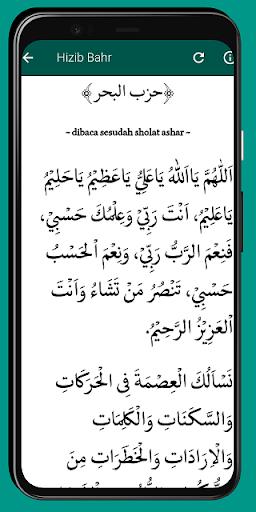 Hizib Bahr
﴿حزب البحر﴾
~ dibaca sesudah sholat ashar ~
اَللّٰهُمَّ يَااَللّٰهُ يَاعَلِيُّ يَاعَظِيْمُ يَاحَلِيْمُ
يَاعَلِيْمُ، اَنْتَ رَبِّيْ وَعِلْمُكَ حَسْبِيْ،
فَنِعْمَ الرَّبُّ رَبِّيْ، وَنِعْمَ الْحَسْبُ
حَسْبِيْ، تَنْصُرُ مَنْ تَشَاءُ وَاَنْتَ
الْعَزِيْزُ الرَّحِيْمُ.
نَسْأَلُكَ الْعِصْمَةَ فِى الْحَرَكَاتِ
وَالسَّكَنَاتِ وَالْكَلِمَاتِ
وَالْاِرَادَاتِ وَالْخَطَرَاتِ مِنَ